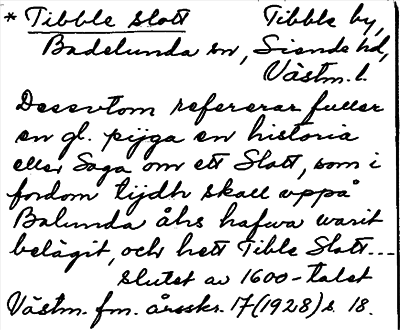 * Tibble slott Tibble by,
Badelunda sn, Siende hd,
Västm. l.
Dessvtom refererar fuller
en gl. pijga en historia
eller Saga om ett Slott, som i
fordom tijdh skall vppå
Balunda åhs hafwa warit
belägit, och hett Tible Slott...
slutet av 1600-talet
Västm. fm. årsskr. 17 (1928) s. 18.